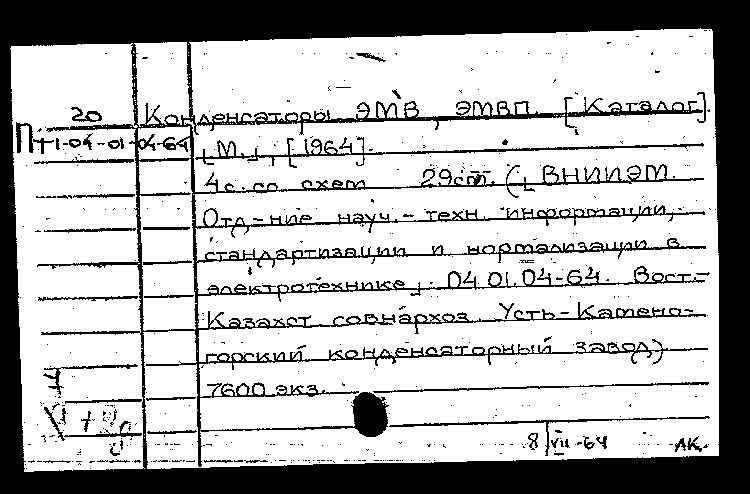 20 Конденсаторы ЭМВ, ЭМВП. [Каталог].
П 11-04-01-04-64 [М.], [1964].
4с. со схем 29см. ([ВНИИЭМ.
Отд-ние науч.-техн. информации,
стандартизации и нормализации в
электротехнике]. 04.01.04-64. Вост.-
Казахст. совнархоз. Усть-Камено-
горский конденсаторный завод)
7600 экз.
8/VII-64 АК.